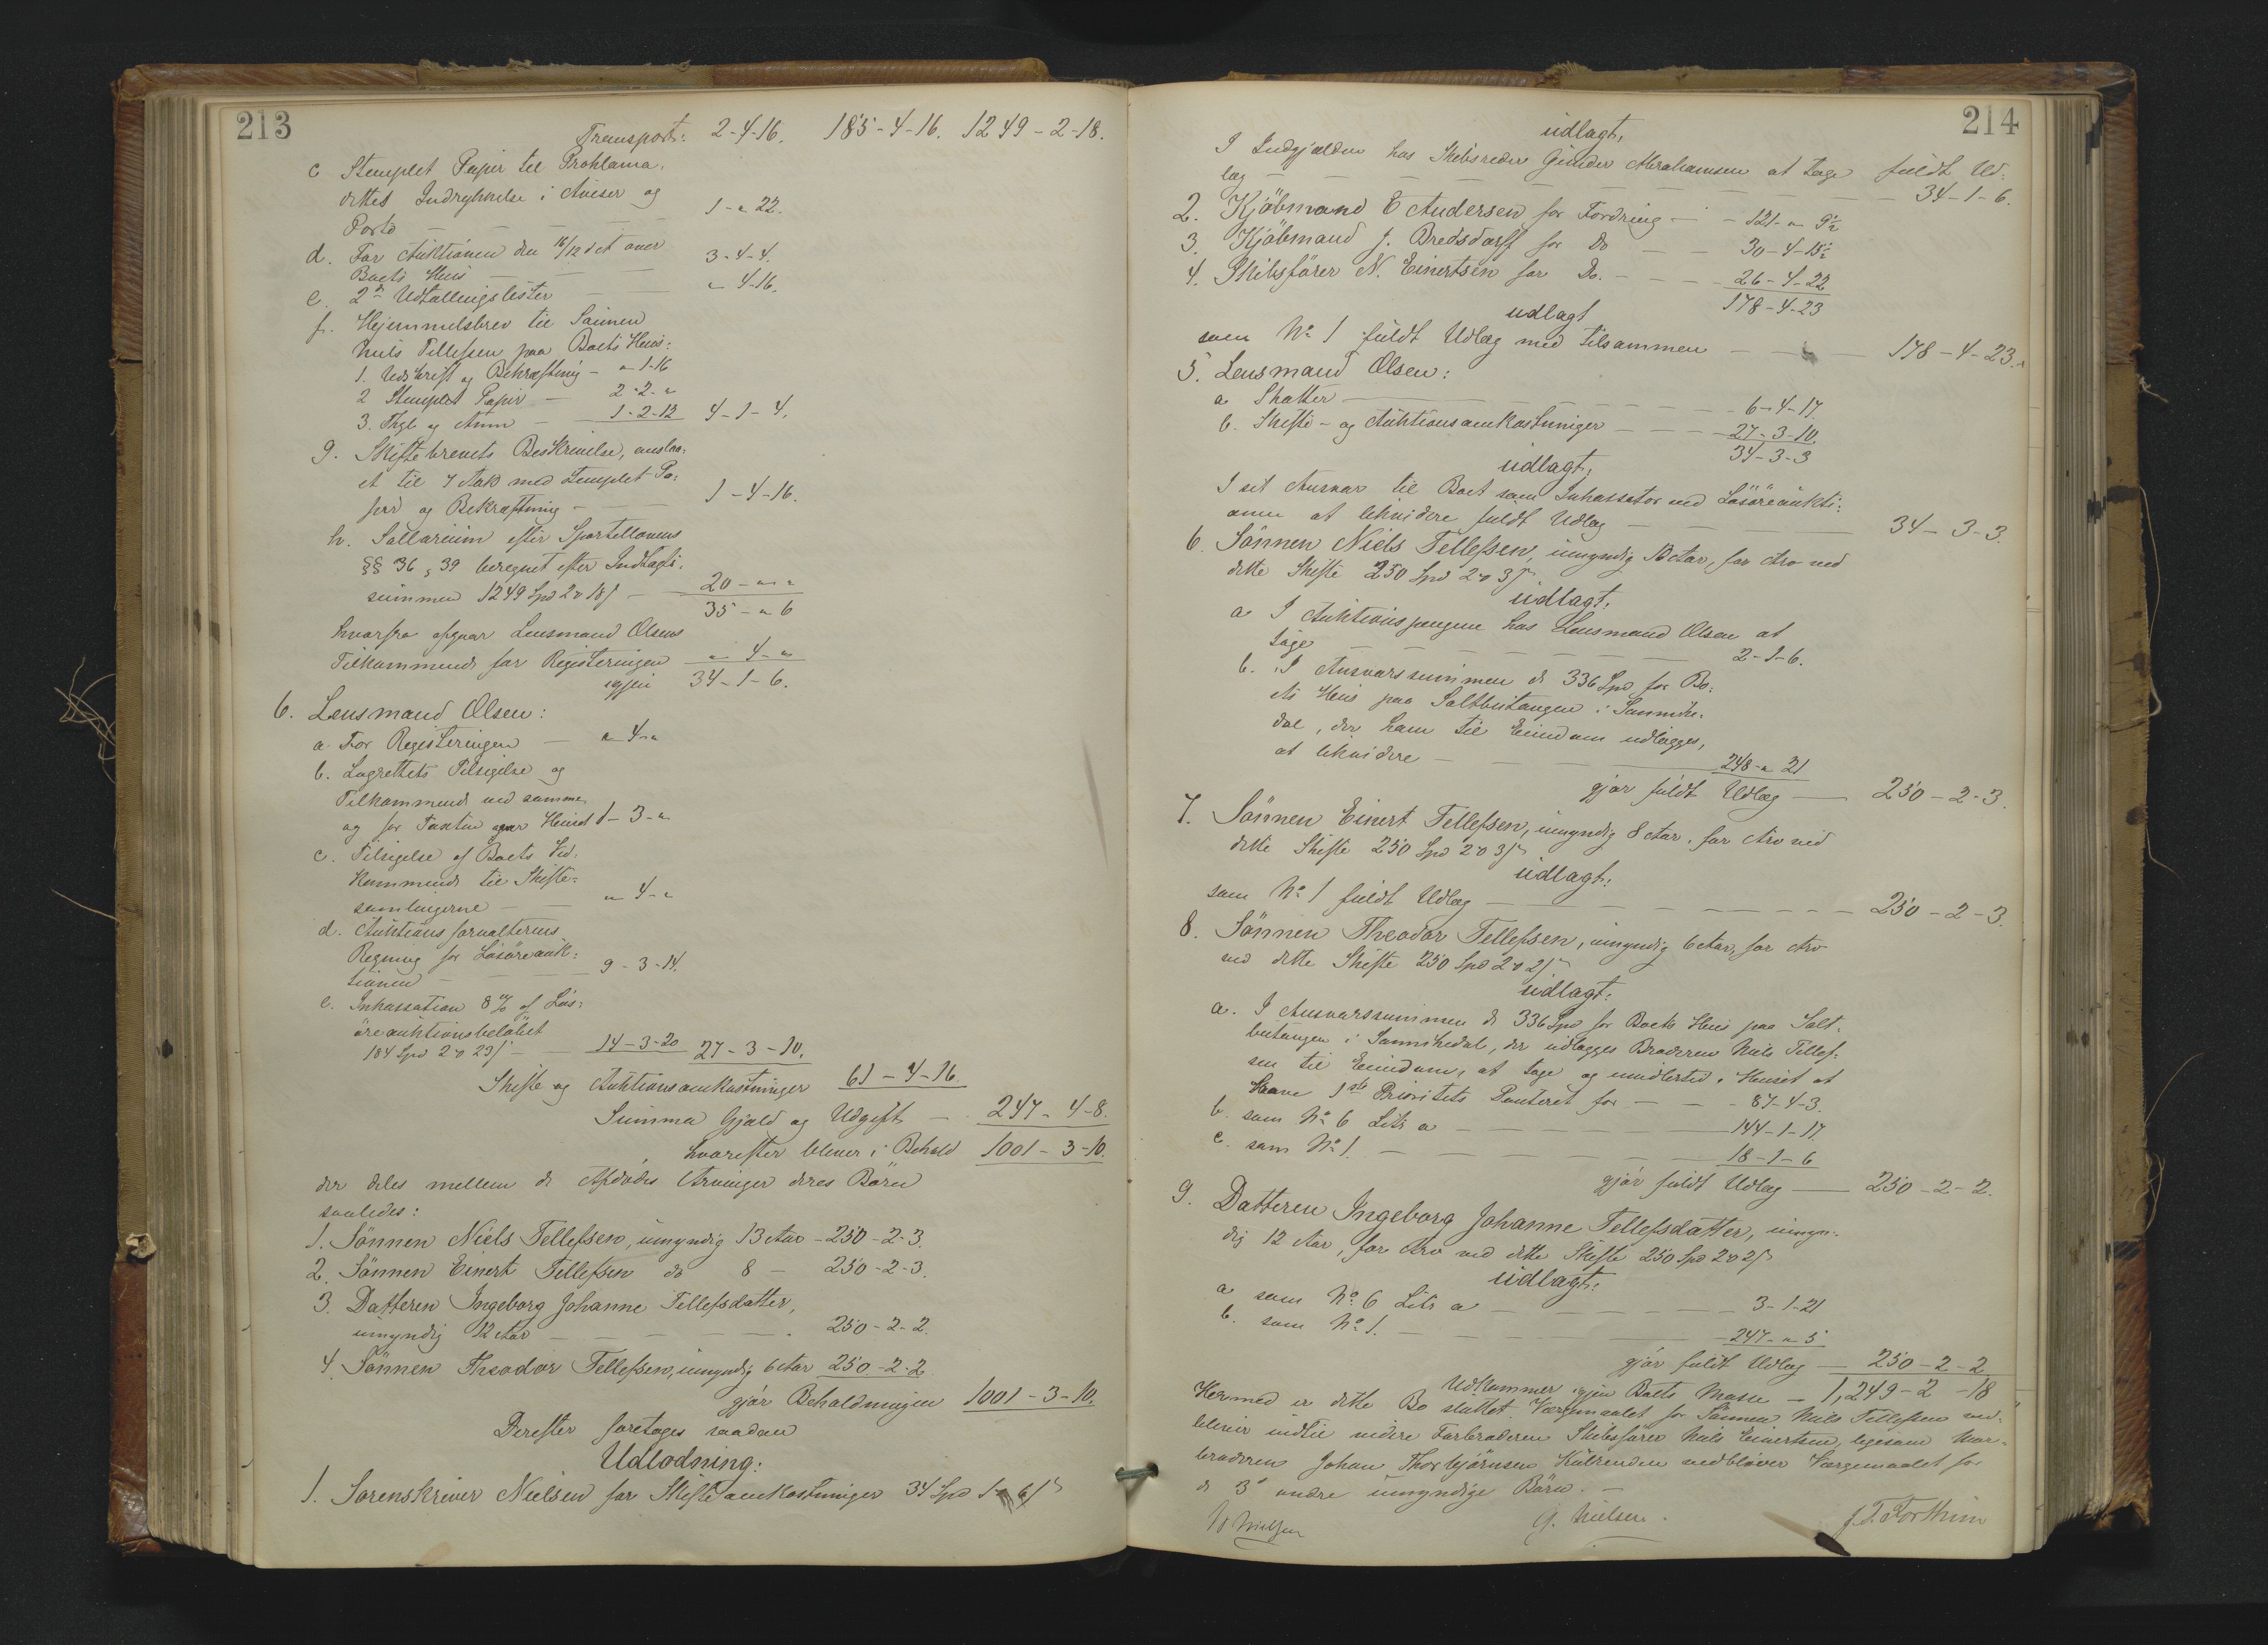 213
Transport: 2-4-16. 185-4-16. 1249-2-18.
c Stemplet Papir til Proklama,
dettes Indrykkelse i Aviser og
Porto — — — 1-"-22.
d. For Auktionen den 16/12 det over
Boets Huus — — 3-4-4.
e. 2de Udtallingslister — — "-4-16.
f. Hjemmelsbrev til Sønnen
Niels Tellefsen paa Boets Huus:
1. Udskrift og Bekræftning — "-1-16
2 Stemplet Papir — 2-2-"
3. Thgl. og Ann — 1-2-12 4-1-4.
g. Skiftebrevets Beskrivelse, anslaa-
et til 7 Ark med stemplet Pa-
pir og Bekræftning — 1-4-16.
h. Sallarium efter Sportellovens
§§ 36, 39 beregnet efter Indtægts-
summen 1249 Spd 2 ort 18 s — 20-"-"
35-"-6
hvorfra afgaar Lensmand Olsens
Tilkommende for Registeringen "-4-"
igjen 34-1-6.
6. Lensmand Olsen:
a. For Registeringen — "-4-"
b. Lagrettets Tilsigelse og
Tilkommende ved samme
og for Taxten over Huset 1-3-"
c. Tilsigelse af Boets Ved-
kommende til Skifte-
samlingerne — — "-4-"
d. Auktionsforvalterens
Regning for Løsøreauk-
tionen — — 9-3-14.
e. Inkassation 8% af Løs-
øreauktionsbeløbet
184 Spd 2 ort 23 s — 14-3-20 27-3-10.
Skifte og Auktionsomkostninger 61-4-16.
Summa Gjæld og Udgift — 247-4-8.
hvorefter bliver i Behold 1001-3-10.
der deles mellem de Afdødes Arvinger deres Børn
saaledes:
1. Sønnen Niels Tellefsen, umyndig 13 Aar — 250-2-3.
2. Sønnen Einert Tellefsen do 8 — 250-2-3.
3. Datteren Ingeborg Johanne Tellefsdatter,
umyndig 12 Aar — — — 250-2-2.
4. Sønnen Theodor Tellefsen, umyndig 6 Aar 250-2-2
gjør Beholdningen 1001-3-10.
Derefter foretages saadan
Udlodning:
1. Sorenskriver Nielsen for Skifteomkostninger 34 Spd 1 ort 6 s
214
udlagt,
I Indgjælden hos Skibsreder Gunder Abrahamsen at tage fuldt Ud-
læg — — — 34-1-6.
2. Kjøbmand E Andersen for Fordring — 121-"-9½
3. Kjøbmand J. Bredsdorff for Do — 30-4-15½
4. Skibsfører N. Einertsen for Do. — — 26-4-22
178-4-23
udlagt
som No 1 fuldt Udlæg med tilsammen — — 178-4-23.
5. Lensmand Olsen:
a Skatter — — 6-4-17.
b. Skifte- og Auktionsomkostninger — — 27-3-10.
34-3-3
udlagt,
I sit Ansvar til Boet som Inkassator ved Løsøreaukti-
onen at likvidere fuldt Udlæg — — 34-3-3.
6. Sønnen Niels Tellefsen, umyndig 13 Aar, for Arv ved
dette Skifte 250 Spd 2 ort 3 s
udlagt:
a I Auktionspengene hos Lensmand Olsen at
tage — — — 2-1-6.
b. I Ansvarssummen de 336 Spd for Bo-
ets Huus paa Saltbutangen i Sannike-
dal, der ham til Eiendom udlægges,
at likvidere — — 248-"-21
gjør fuldt Udlæg — 250-2-3.
7. Sønnen Einert Tellefsen, umyndig 8 Aar, for Arv ved
dette Skifte 250 Spd 2 ort 3 s
udlagt:
som No 1 fuldt Udlæg — — — 250-2-3.
8. Sønnen Theodor Tellefsen, umyndig 6 Aar, for Arv
ved dette Skifte 250 Spd 2 ort 2 s
udlagt:
a. I Ansvarssummen de 336 Spd for Boets Huus paa Salt-
butangen i Sannikedal, der udlægges Broderen Niels Tellef-
sen til Eiendom, at tage og imidlertid i Huset at
have 1ste Prioritets Panteret for — — 87-4-3.
b. som No 6 Litr a — — 144-1-17.
c. som No 1. — — 18-1-6
gjør fuldt Udlæg — 250-2-2.
9. Datteren Ingeborg Johanne Tellefsdatter, umyn-
dig 12 Aar, for Arv ved dette Skifte 250 Spd 2 ort 2 s
udlagt:
a som No 6 Litr a — — 3-1-21
b. som No 1. — — 247-"-5
gjør fuldt Udlæg — 250-2-2.
Udkommer igjen Boets Masse — 1,249-2-18
Hermed er dette Bo sluttet. Værgemaalet for Sønnen Niels Tellefsen ved-
bliver indtil videre Farbroderen Skibsfører Niels Einertsen, ligesom Mor-
broderen Johan Thorbjørnsen vedbliver Værgemaalet for
de 3de andre umyndige Børn. —
Nielsen G. Nielsen.